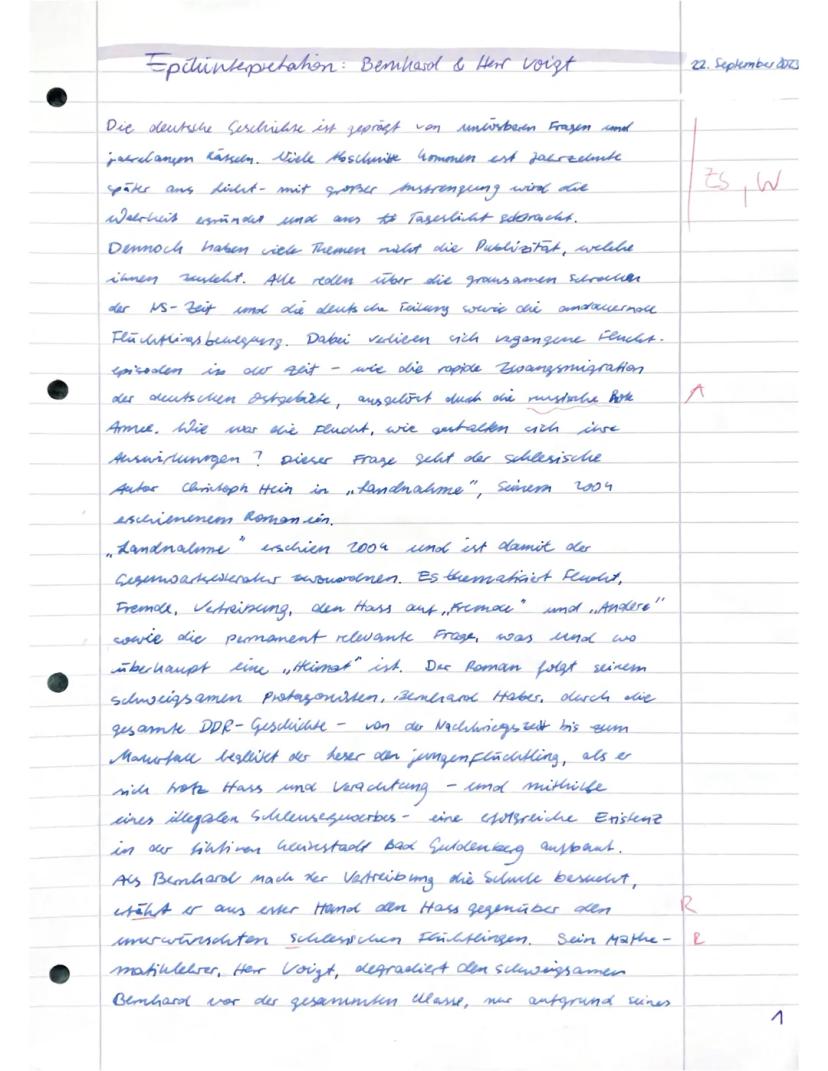 Epikinterpretation: Bernhard & Herr Voigt
22. September 2023
Die deutsche Geschichte ist geprägt von unlösbaren Fragen und
jahrelangen Rätseln. Viele Abschnitte kommen erst Jahrzehnte
später ans Licht - mit großer Anstrengung wird die
Wahrheit ergründet und ans Tageslicht gebracht.
ZS, W
Dennoch haben viele Themen nicht die Publizität, welche
ihnen zusteht. Alle reden über die grausamen Schrecken
der NS-Zeit und die deutsche Teilung sowie die andauernde
Flüchtlingsbewegung. Dabei verlieren sich vergangene Flucht-
episoden in der Zeit - wie die rapide Zwangsmigration
der deutschen Ostgebiete, ausgelöst durch die russische Rote
A
Armee. Wie war die Flucht, wie gestalten sich ihre
Auswirkungen? Dieser Frage geht der schlesische
Autor Christoph Hein in „Landnahme", seinem 2004
erschienenem Roman ein.
„Landnahme" erschien 2004 und ist damit der
Gegenwartsliteratur zuzuordnen. Es thematisiert Flucht,
Fremde, Vertreibung, den Hass auf „Fremde" und „Andere"
sowie die permanent relevante Frage, was und wo
überhaupt eine „Heimat" ist. Der Roman folgt seinem
schweigsamen Protagonisten, Bernhard Haber, durch die
gesamte DDR-Geschichte - von der Nachkriegszeit bis zum
Mauerfall begleitet der Leser den jungen Flüchtling, als er
sich trotz Hass und Verachtung - und mithilfe
eines illegalen Schleusergewerbes - eine erfolgreiche Existenz
in der fiktiven Kleinstadt Bad Guldenberg aufbaut.
Als Bernhard nach der Vertreibung die Schule besucht,
erfährt er aus erster Hand den Hass gegenüber den
R
unerwünschten schlesischen Flüchtlingen. Sein Mathe-
R
matiklehrer, Herr Voigt, degradiert den schweigsamen
Bernhard vor der gesammten Klasse, nur aufgrund seines
1